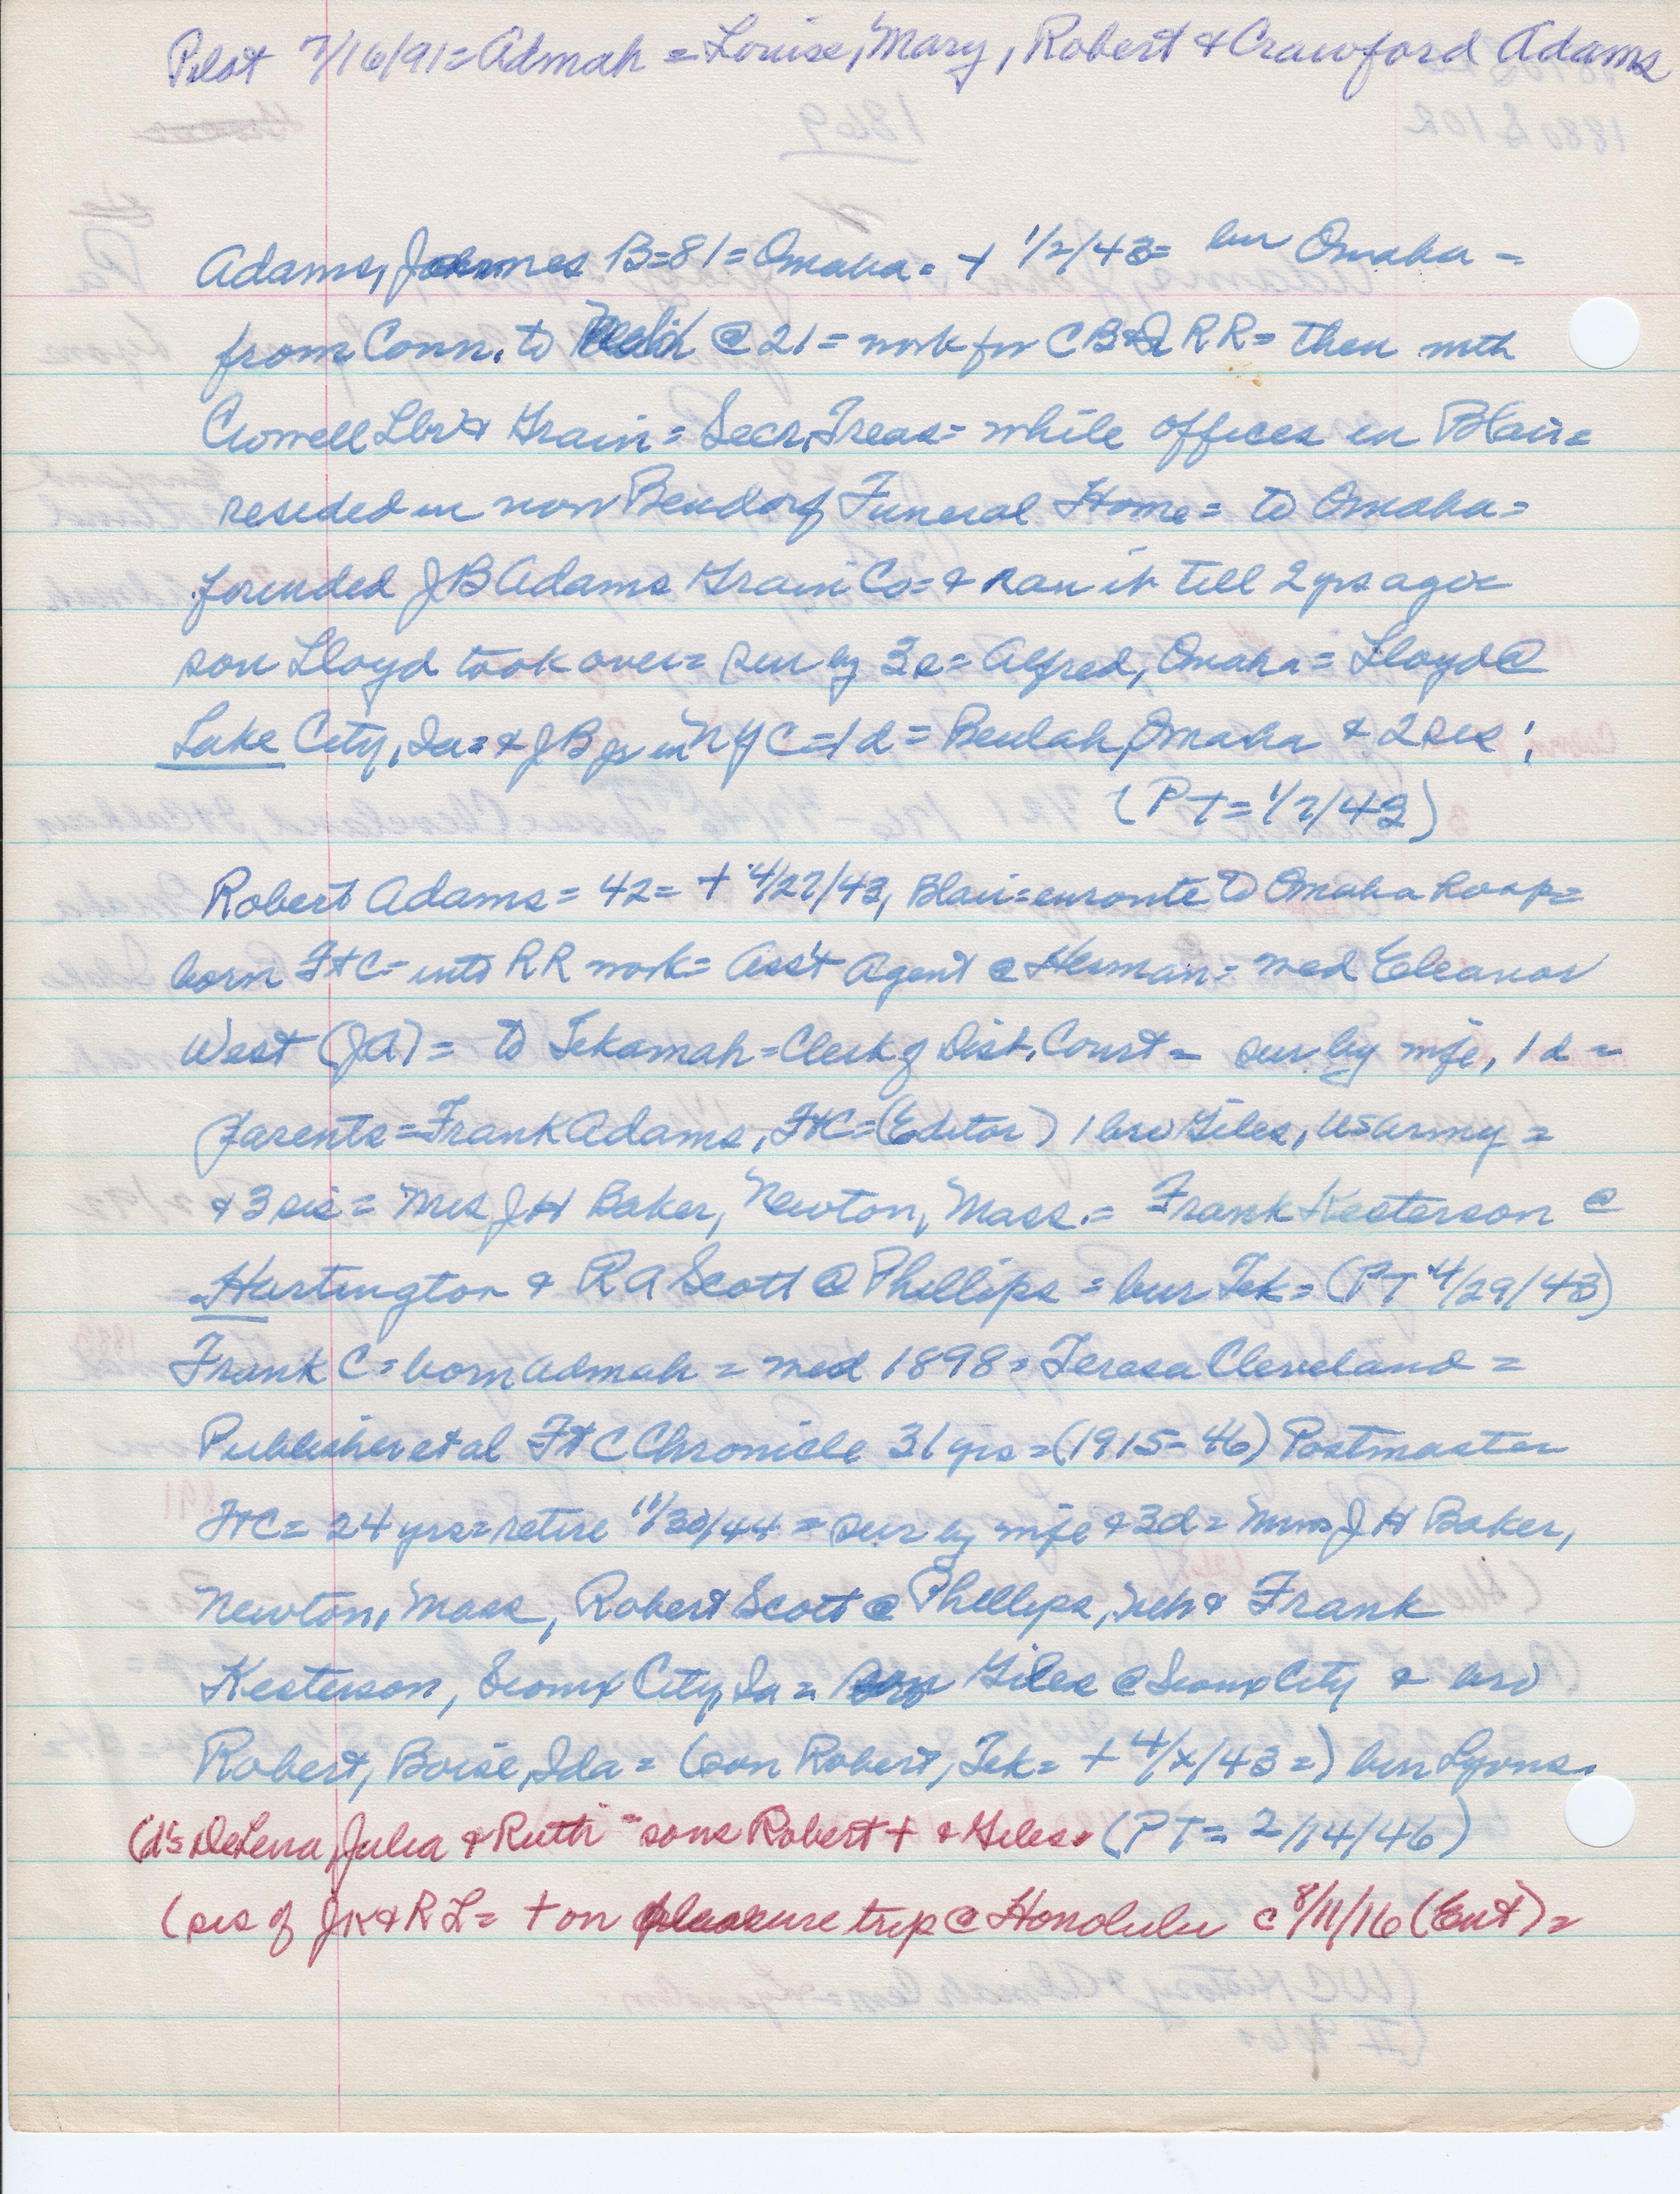 Pilot 7/16/91 = Admah = Louise, Mary, Robert & Crawford Adams
Adams, James B = 81 = Omaha = + 1/2/43 = bur Omaha =
from Conn. to @ 21 = work for CB&Q RR = then with
Crowell Lbr & Grain = Secr. Treas = while offices in Blair =
resided in now Bendorf Funeral Home = to Omaha =
founded JB Adams Grain Co = & ran it till 2 yrs ago =
son Lloyd took over = sur by 3s = Alfred, Omaha = Lloyd @
Lake City, Ia = & JB jr in NYC = 1d = Beulah, Omaha & 2 sis;
(PT = 1/7/43)
Robert Adams = 42 = + 4/27/43, Blair = enroute to Omaha hosp =
born FtC = into RR work = Ass't Agent @ Herman = med Eleanor
West (JA) = to Tekamah = Clerk of Dist. Court = sur by wife, 1d =
parents = Frank Adams, FtC = (Editor) 1 bro Giles, US Army =
& 3 sis = Mrs JH Baker, Newton, Mass. = Frank Kesterson @
Hartington & RA Scott @ Phillips = bur Tek = (PT 4/29/43)
Frank C = born Admah = med 1898 = Teresa Cleveland =
Publisher et al FtC Chronicle 31 yrs = (1915-46) Postmaster
FtC = 24 yrs = retire 11/30/44 = sur by wife & 3d = Mrs JH Baker,
Newton, Mass, Robert Scott @ Phillips, Neb & Frank
Kesterson, Sioux City, Ia = son Giles @ Sioux City & bro
Robert, Boise, Ida = (son Robert, Tek = + 4/x/43 =) bur Lyons.
(d's DeLena, Julia & Ruth = sons Robert + & Giles. (PT = 2/14/46)
(sis of JK & RL = + on pleasure trip @ Honolulu c 8/11/16 (Ent) =